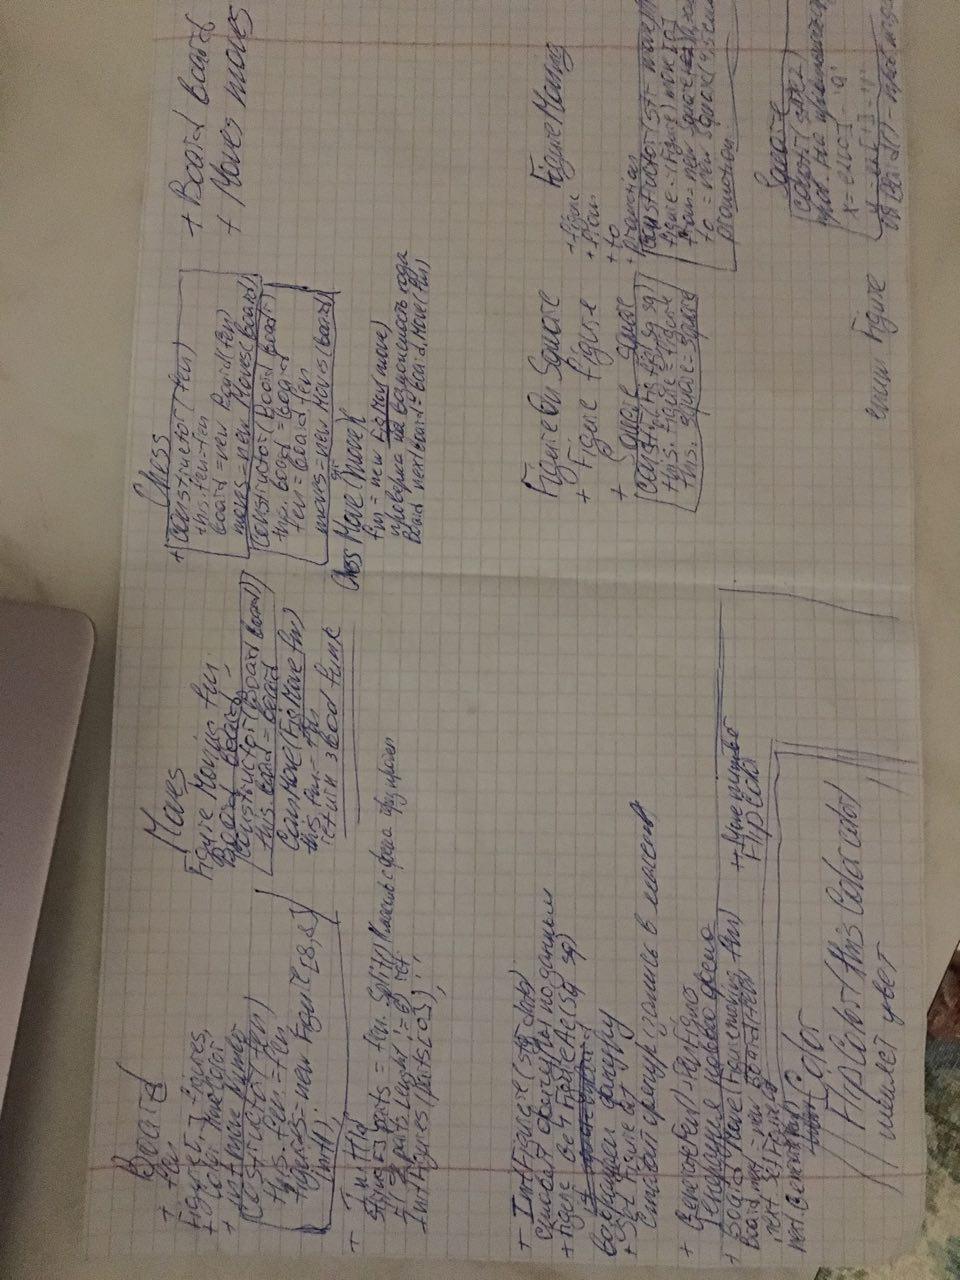 Board
+ fen
Figure[,] figures,
+ Color moveColor
+ int move Number
Constructor(fen)
this.fen = fen
figures = new Figure[8,8]
Init();
+ Init()
String[] parts = fen.Split()
if(parts.Lenght != 6) ret
InitFigures(parts[0]);
+ InitFigure(str data)
ставит фигуры по данным
+ Figure Get FigureAt(Sq sq)
возвращает фигуру
+ Set Figure at
ставит фигуру запись в массив
+ GenerateFen() FenFigures
Генерация нового фена
+ Board Move(Figuremoving fm)
Board next = new Board(fen)
next. SetFigure
next.Generate
+ Move number
FlipColor
Color
FlipColor(this Color color)
меняет цвет
Moves
Figure Moving fm;
Board board;
constructor(Board board)
this.board = board
CanMove(FigMove fm)
this.fm = fm
return 3 bool funk
Chess
+ constructor(fen)
this.fen=fen
board = new Board(fen)
moves = new Moves(board)
constructor(Board board)
this. board = board
fen = board fen
moves = new Moves(board)
Chess Move(str move){
fm = new FigMov(move)
проверка на возможность хода
Board nextBoard = board.Move(fm)
+ Board board
+ Moves moves
FigureOnSquare
+ Figure figure
+ Square square
const(Fig fig, Sq sq)
this. figure = figure
this. square = square
FigureMoving
+ figure
+ from
+ to
+ promotion
constructor(str move)
figure = (Figure) move[0]
from = new Square
to = new Square(4,5
promotion
Square
x = e2[0] - 'a'
enum Figure